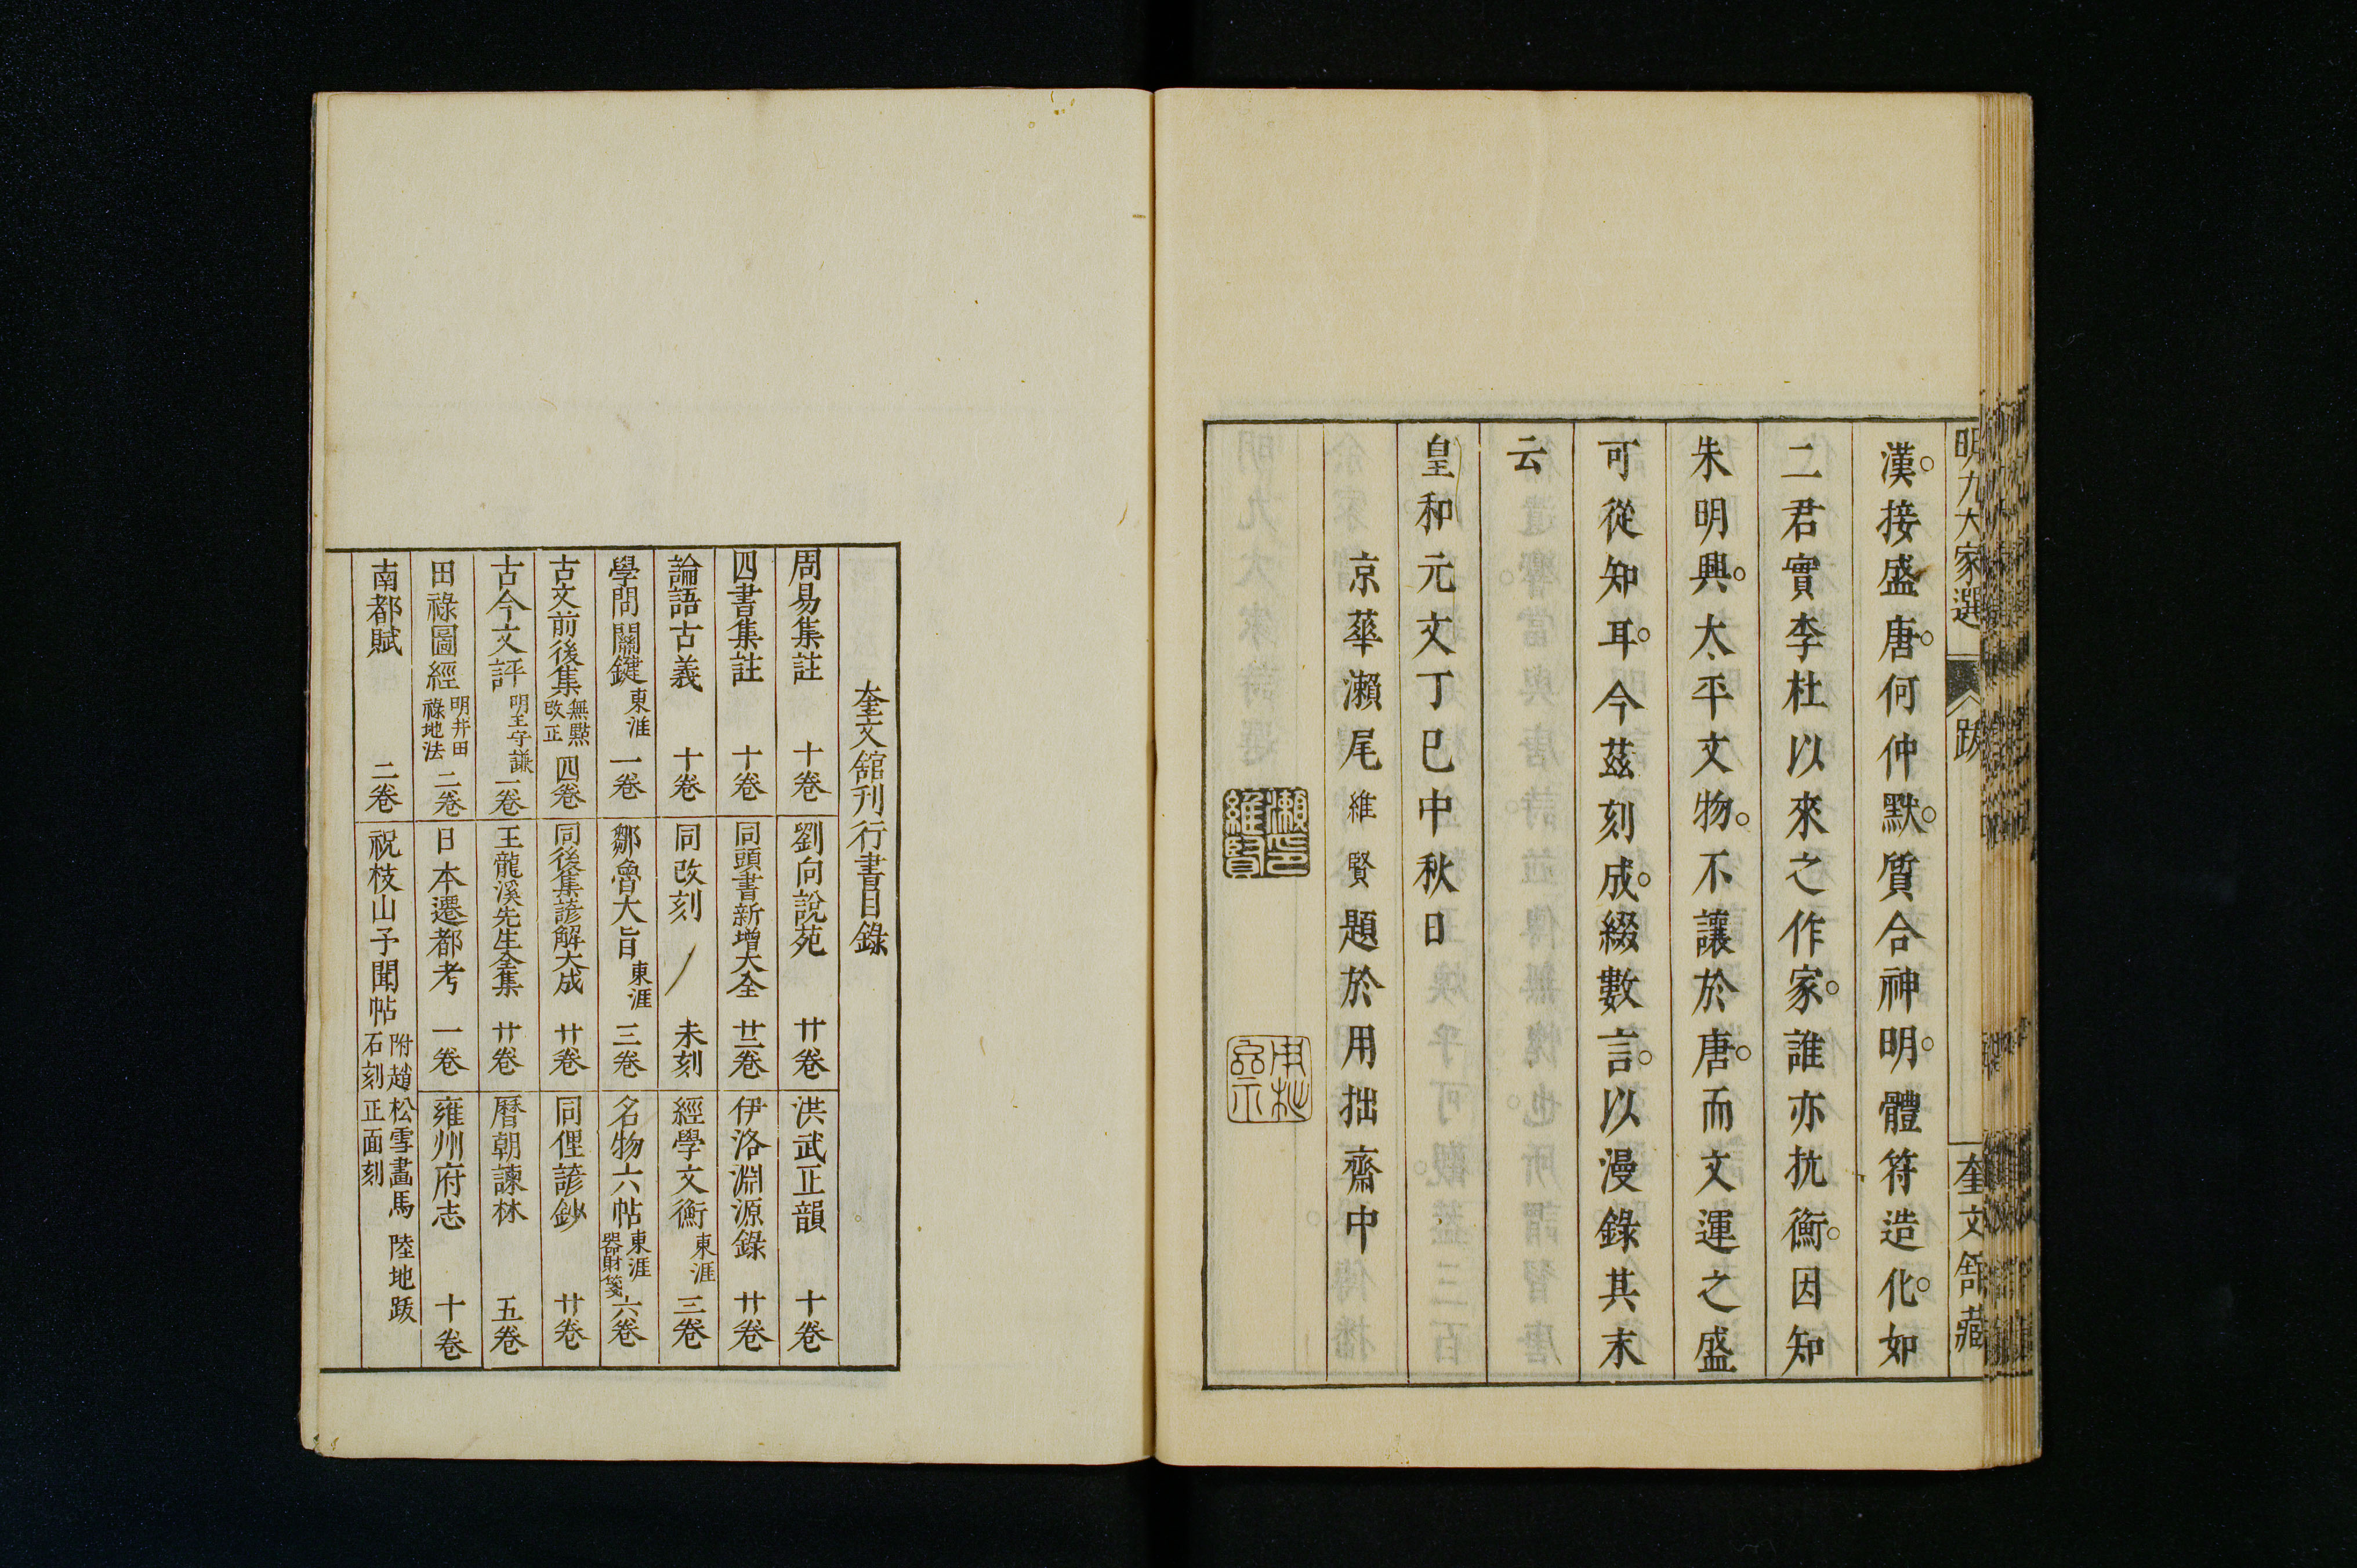 明九大家選
跋
奎文館藏
漢。接盛唐。何仲默。質合神明。體符造化。如
二君實李杜以來之作家。誰亦抗衡。因知
朱明興。太平文物。不讓於唐。而文運之盛
可從知耳。今茲刻成。綴數言。以漫錄其末
云
皇和元文丁巳中秋日
京華瀨尾維賢題於用拙齋中
維賢
奎文舘刊行書目錄
周易集註 十卷
劉向說苑 廿卷
洪武正韻 十卷
四書集註 十卷
同頭書新增大全 廿二卷
伊洛淵源錄 廿卷
論語古義 十卷
同改刻 未刻
經學文衡 東涯 三卷
學問關鍵 東涯 一卷
鄒魯大旨 東涯 三卷
名物六帖 東涯 器財箋 六卷
古文前後集 無點 改正 四卷
同後集諺解大成 廿卷
同俚諺鈔 廿卷
古今文評 明王守謙 一卷
王龍溪先生全集 廿卷
曆朝諫林 五卷
田祿圖經 明井田 祿地法 二卷
日本遷都考 一卷
雍州府志 十卷
南都賦 二卷
祝枝山子聞帖 附趙松雪畵馬 陸地跋 石刻 正面刻